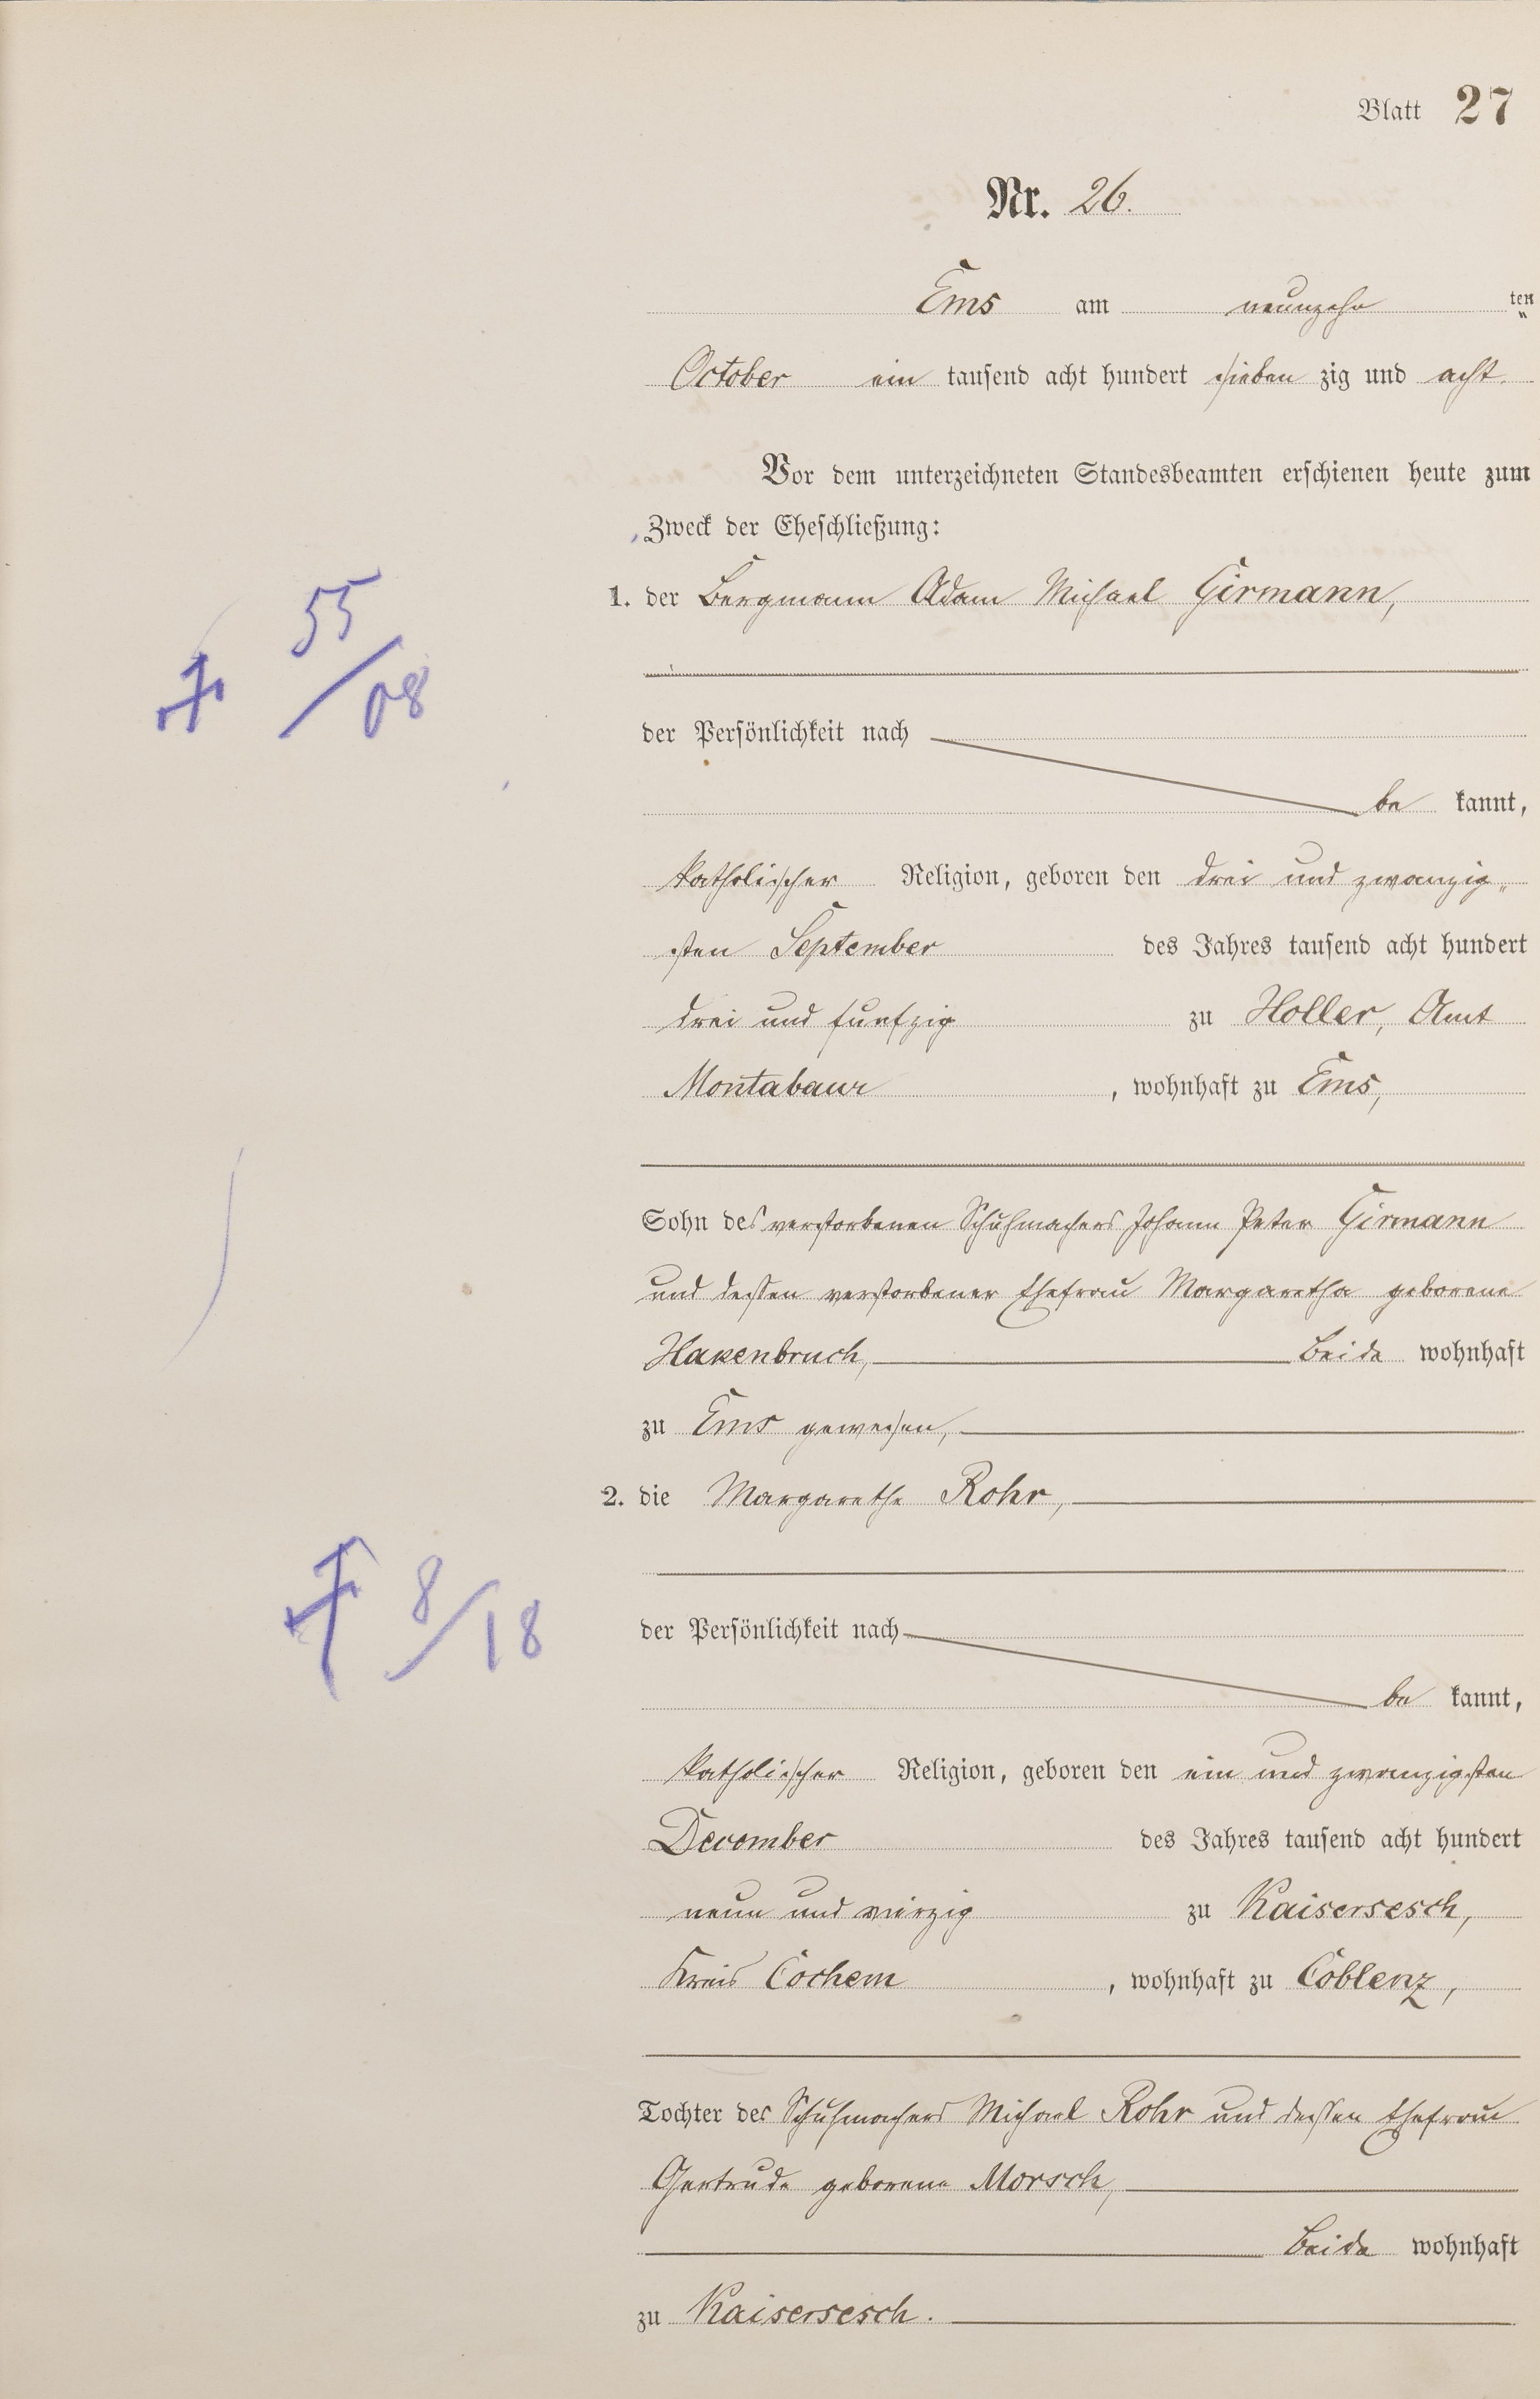 Blatt 27
Nr. 26.
Ems am neunzehn ten
October ein tausend acht hundert sieben zig und acht.
Vor dem unterzeichneten Standesbeamten erschienen heute zum
Zweck der Eheschließung:
1. der Bergmann Adam Michael Girmann,
55/08
der Persönlichkeit nach
be kannt,
katholischer Religion, geboren den drei und zwanzig„
sten September des Jahres tausend acht hundert
drei und funfzig zu Holler, Amt
Montabaur, wohnhaft zu Ems,
Sohn des verstorbenen Schuhmachers Johann Peter Girmann
und dessen verstorbener Ehefrau Margaretha geborene
Hakenbruch, beide wohnhaft
zu Ems gewesen,
2. die Margarethe Rohr,
8/18
der Persönlichkeit nach
be kannt,
katholischer Religion, geboren den ein und zwanzigsten
December des Jahres tausend acht hundert
neun und vierzig zu Kaisersesch,
Kreis Cochem, wohnhaft zu Coblenz,
Tochter des Schuhmachers Michael Rohr und dessen Ehefrau
Gertrude geborene Morsch,
beide wohnhaft
zu Kaisersesch.